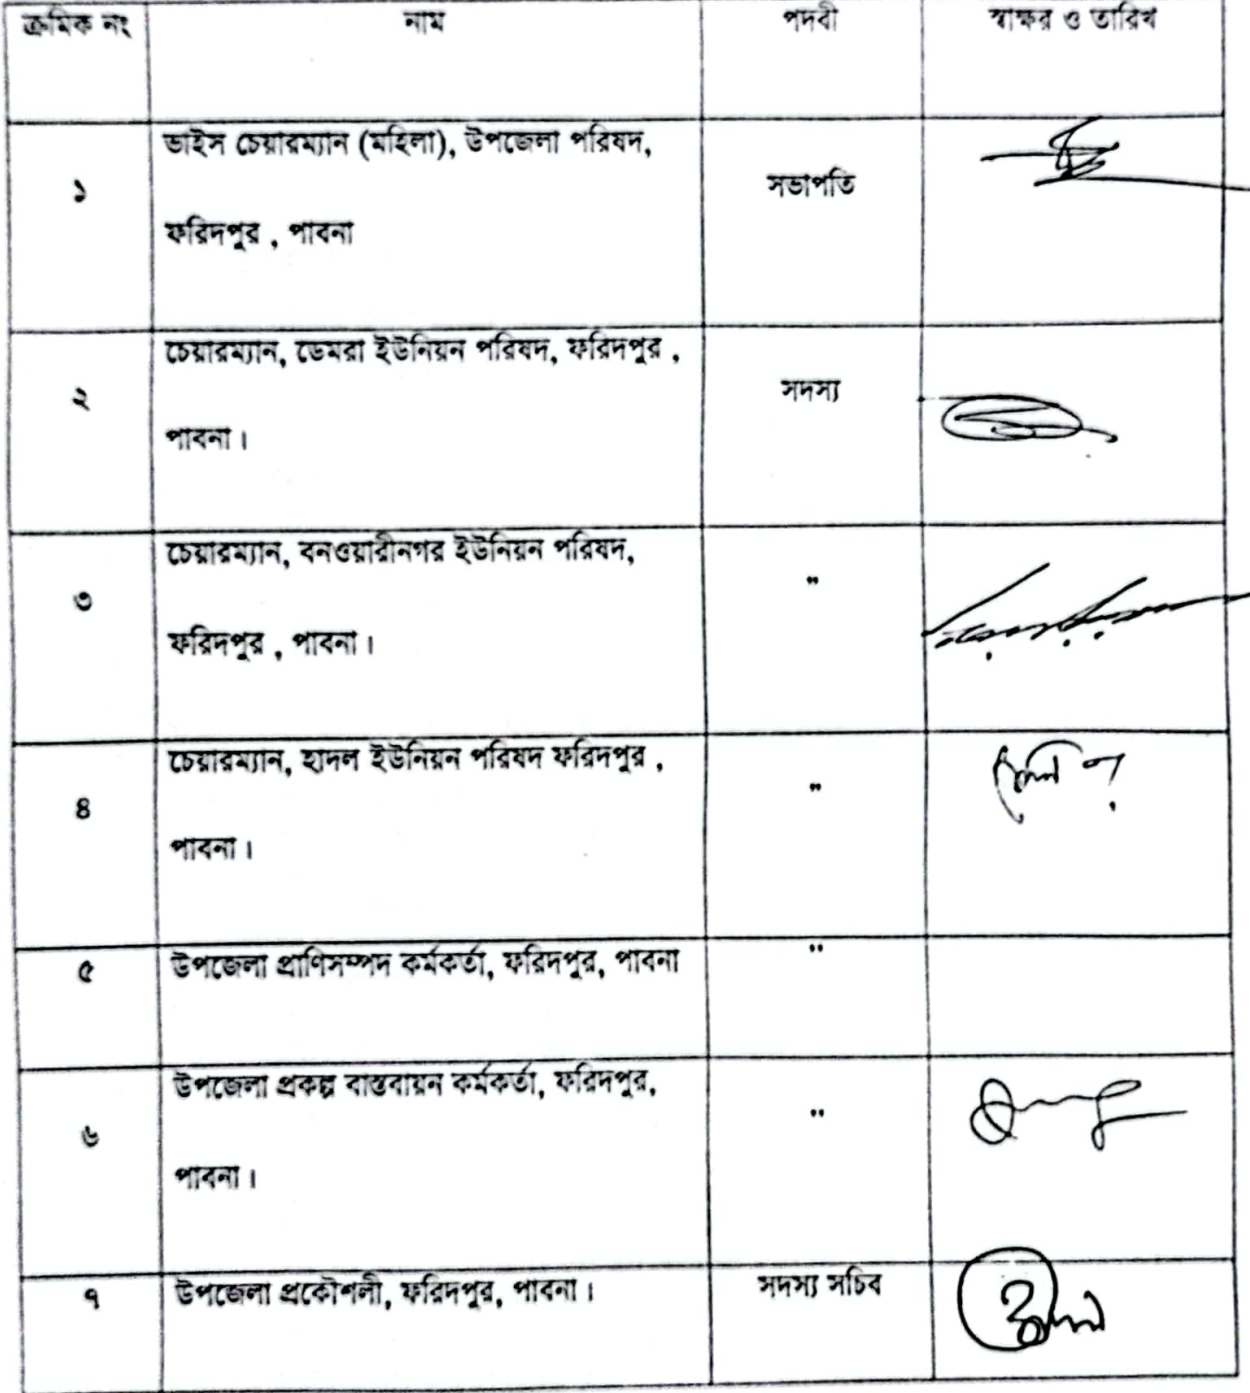 ক্রমিক নং নাম পদবী স্বাক্ষর ও তারিখ
ভাইস চেয়ারম্যান (মহিলা), উপজেলা পরিষদ,
১ সভাপতি
ফরিদপুর , পাবনা
চেয়ারম্যান, ডেমরা ইউনিয়ন পরিষদ, ফরিদপুর ,
২ সদস্য
পাবনা ।
চেয়ারম্যান, বনওয়ারীনগর ইউনিয়ন পরিষদ,
৩ "
ফরিদপুর , পাবনা ।
চেয়ারম্যান, হাদল ইউনিয়ন পরিষদ ফরিদপুর ,
৪ "
পাবনা ।
৫ উপজেলা প্রাণিসম্পদ কর্মকর্তা, ফরিদপুর, পাবনা "
উপজেলা প্রকল্প বাস্তবায়ন কর্মকর্তা, ফরিদপুর,
৬ "
পাবনা ।
৭ উপজেলা প্রকৌশলী, ফরিদপুর, পাবনা । সদস্য সচিব